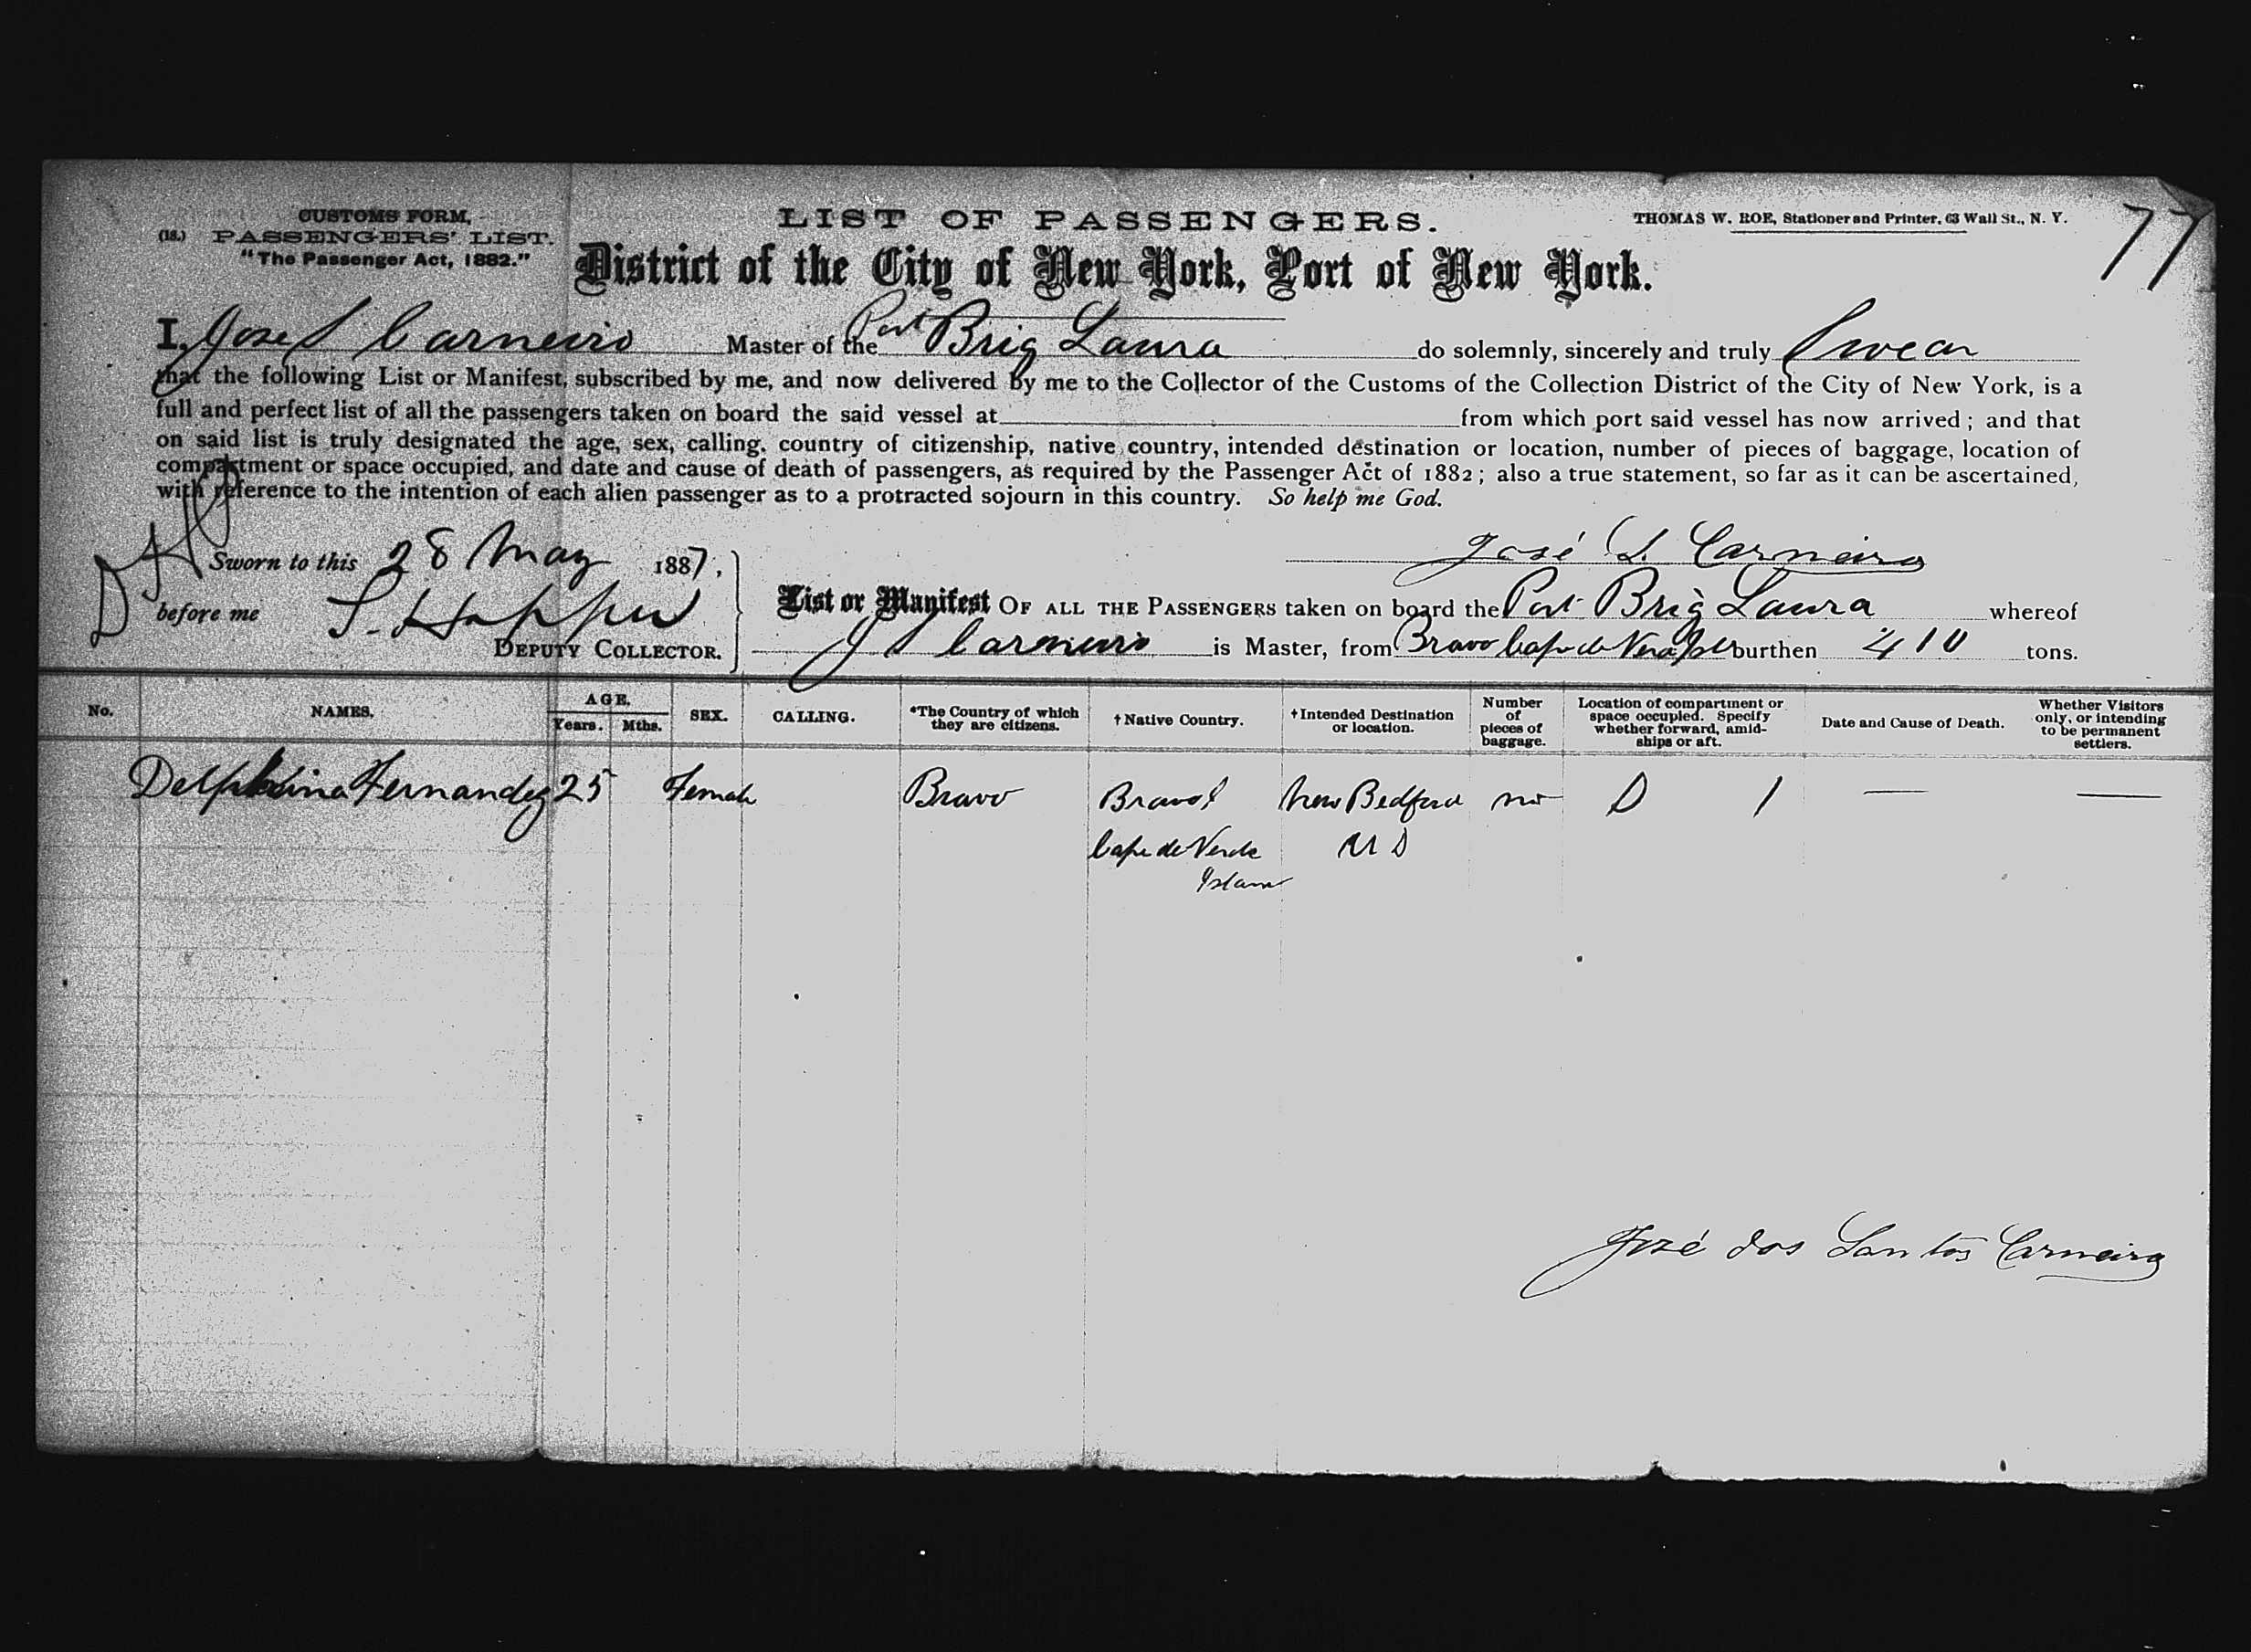 CUSTOMS FORM,
(18.) PASSENGERS' LIST.
"The Passenger Act, 1882."
LIST OF PASSENGERS.
THOMAS W. ROE, Stationer and Printer, 63 Wall St., N. Y.
77
District of the City of New York, Port of New York.
I, Jose S Carneiro Master of the Port Brig Laura do solemnly, sincerely and truly Swear
that the following List or Manifest, subscribed by me, and now delivered by me to the Collector of the Customs of the Collection District of the City of New York, is a
full and perfect list of all the passengers taken on board the said vessel at from which port said vessel has now arrived; and that
on said list is truly designated the age, sex, calling, country of citizenship, native country, intended destination or location, number of pieces of baggage, location of
compartment or space occupied, and date and cause of death of passengers, as required by the Passenger Act of 1882; also a true statement, so far as it can be ascertained,
with reference to the intention of each alien passenger as to a protracted sojourn in this country. So help me God.
Sworn to this 28 May 1887,
José S. Carneiro
before me
DEPUTY COLLECTOR.
List or Manifest OF ALL THE PASSENGERS taken on board the Port Brig Laura whereof
J S Carneiro is Master, from Bravo Cape de Verd burthen 410 tons.
No. NAMES. AGE. Years. Mths. SEX. CALLING. *The Country of which they are citizens. †Native Country. †Intended Destination or location. Number of pieces of baggage. Location of compartment or space occupied. Specify whether forward, amidships or aft. Date and Cause of Death. Whether Visitors only, or intending to be permanent settlers.
Delphina Fernandez 25 Female Bravo Bravo New Bedford no 1 — —
Cape de Verde
Island
José dos Santos Carneiro